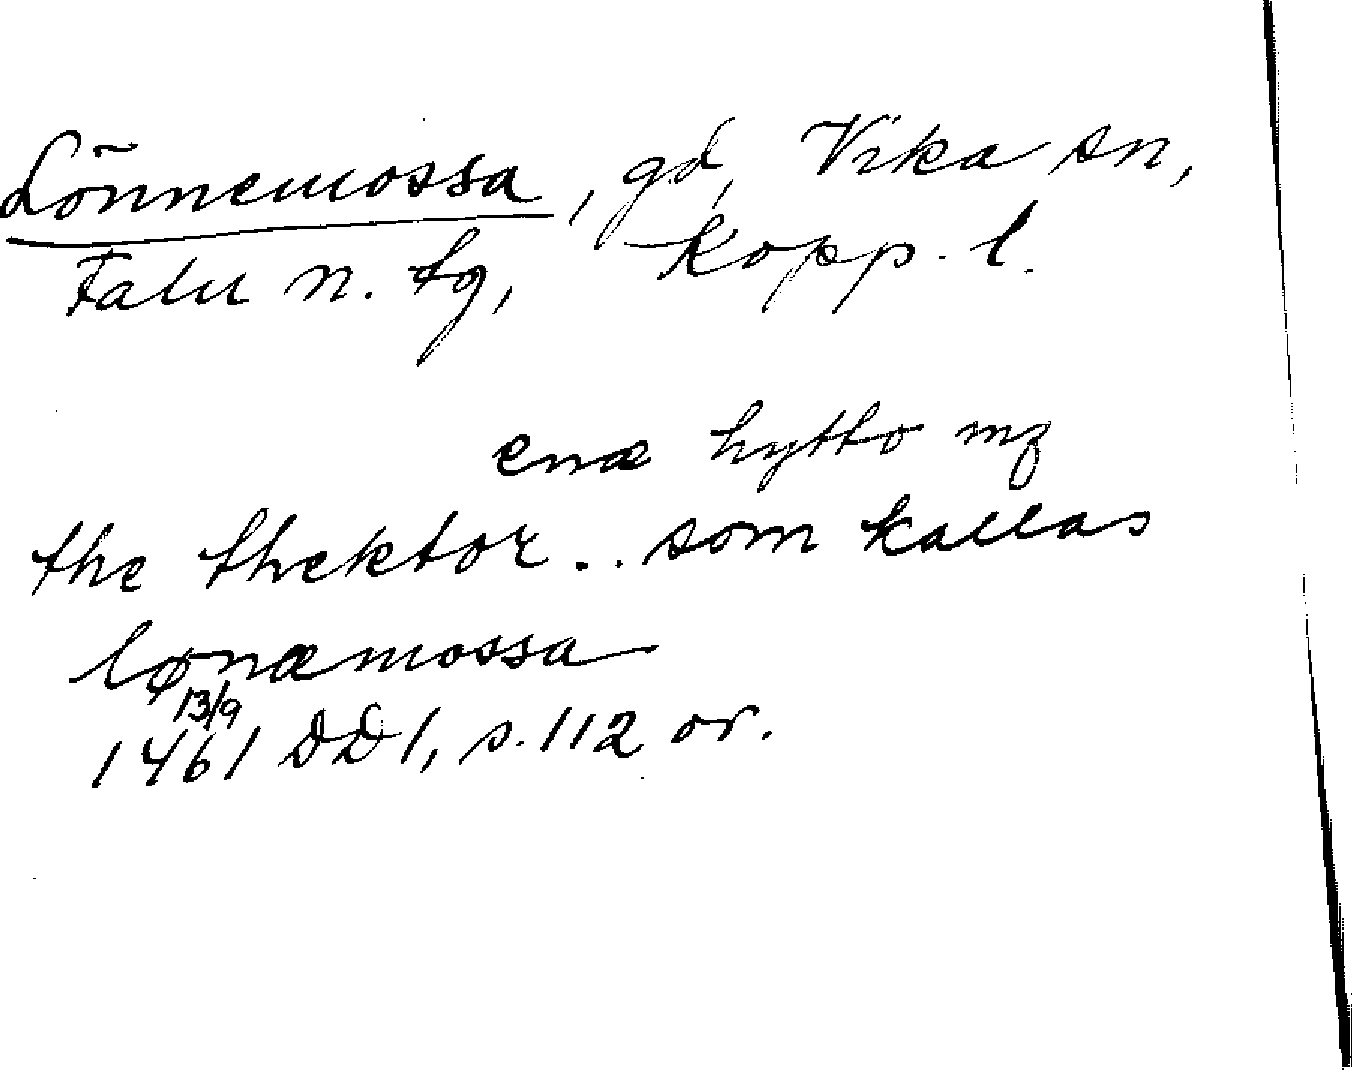 Lönnemossa, gd, Vika sn,
Falu n. tg, Kopp. l.
enæ hytto mz
the thektor .. som kallas
lønæmossa
13/9
1461 DD 1, s. 112 or.